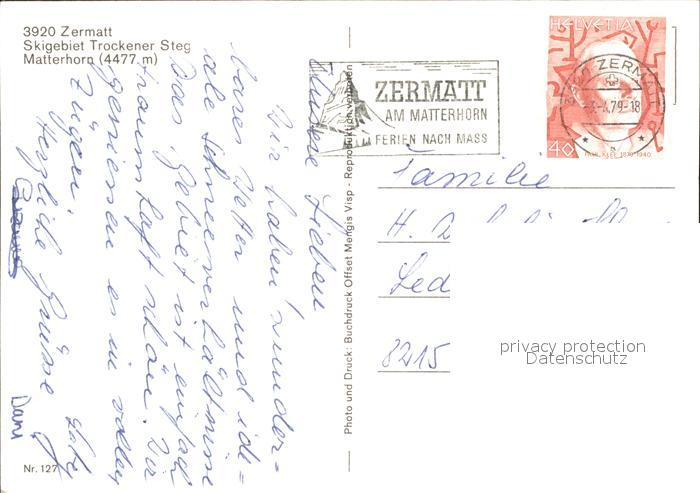 3920 Zermatt
Skigebiet Trockener Steg
Matterhorn (4477 m)
Lieben
Wir haben wunder-
bares Wetter und ide-
ale Schneeverhältnisse
Das Gebiet ist einfach
traumhaft schön. Wir
geniessen es in vollen
Zügen.
Herzliche Grüsse
Dani
Nr. 127
Photo und Druck: Buchdruck Offset Mengis Visp - Reproduktion verboten
ZERMATT
AM MATTERHORN
FERIEN NACH MASS
HELVETIA
3920 ZERMATT
-4.79-18
40
PAUL KLEE 1879-1940
Familie
H.
8215
privacy protection
Datenschutz